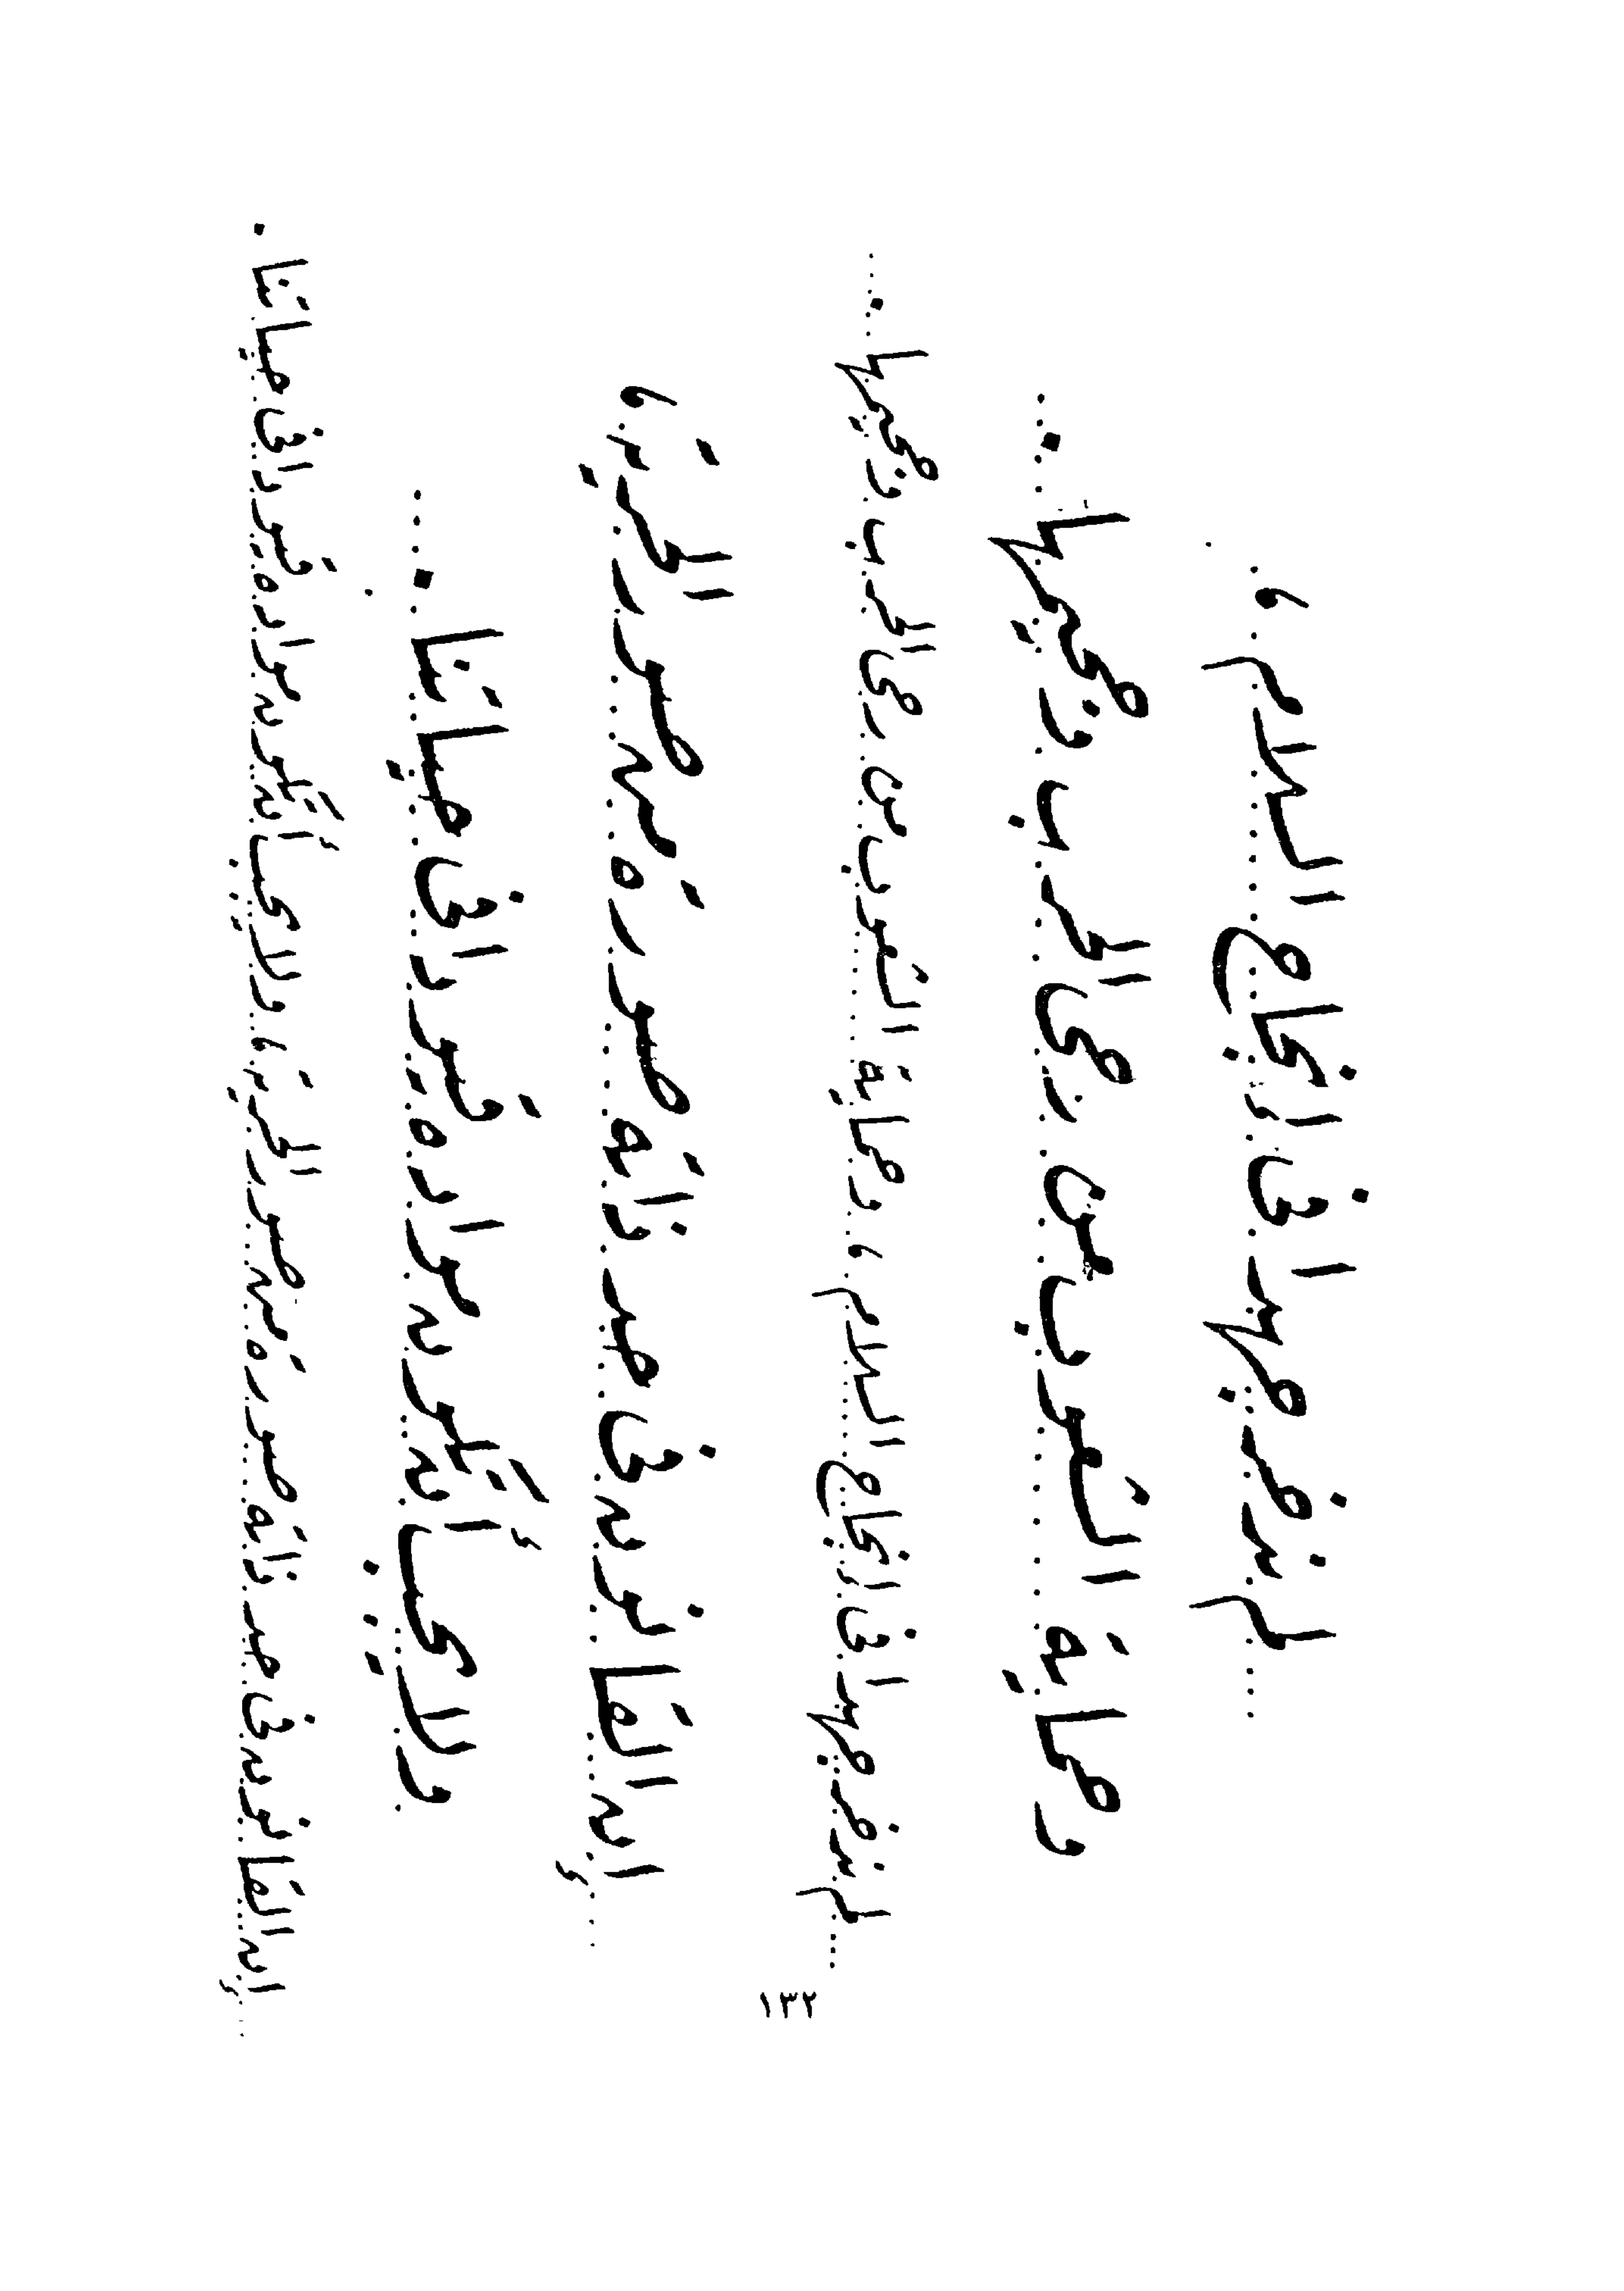 لم ندخر جهدا في إنجاح السلام ،
وحماية الشعوب من رحى الحرب وجحيمها .
لم ندخر جهدا في إنجاح السلام ، وحماية الشعوب من رحى الحرب وجحيمها .
إن القانون في حد ذاته صورة من صور الحرية ،
ولا يجب أن تكون مواده قيودا في حياتنا .
إن القانون في حد ذاته صورة من صور الحرية ، ولا يجب أن تكون مواده قيودا في حياتنا .
١٣٢